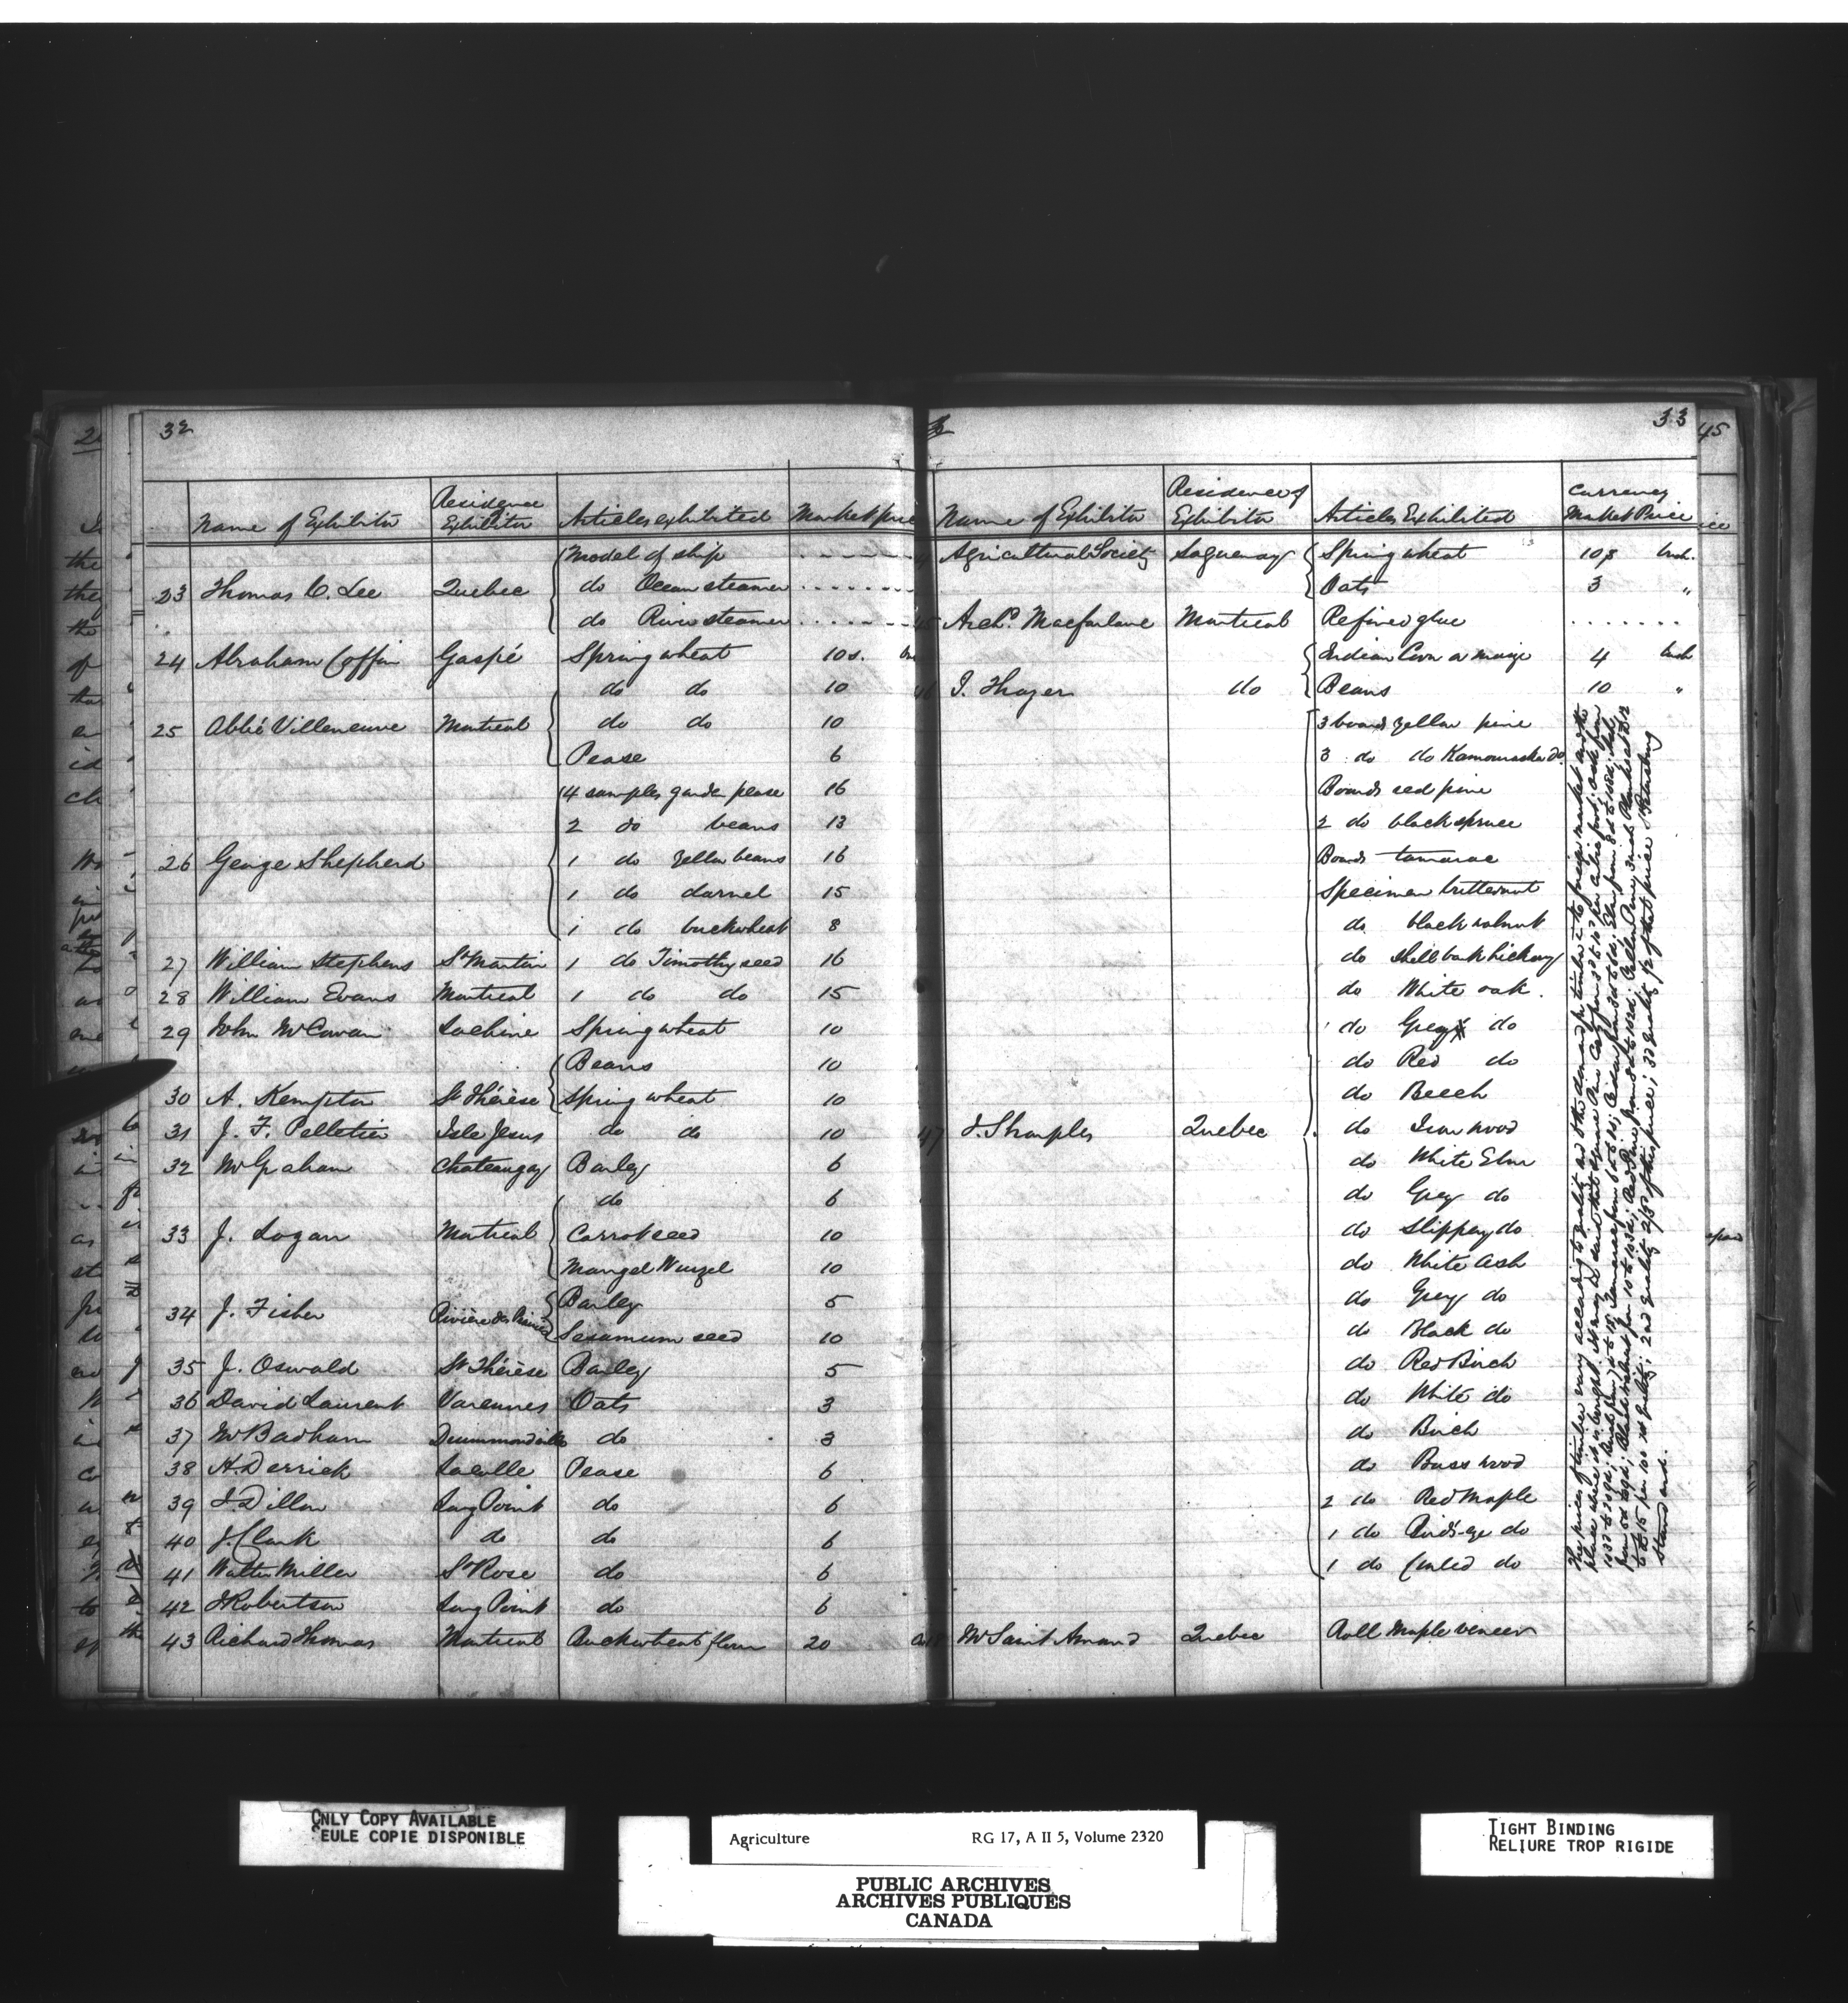 32
Name of Exhibitor Residence of Exhibitor Articles exhibited Market price
23 Thomas C. Lee Quebec Model of ship
do Ocean steamer
do River steamer
24 Abraham Coffin Gaspé Spring wheat 10s.
25 Abbé Villeneuve Montreal do do 10
do do 10
Pease 6
26 George Shepherd 14 samples garden pease 16
2 do beans 13
1 do yellow beans 16
1 do darnel 15
1 do buckwheat 8
27 William Stephens St Martin 1 do Timothy seed 16
28 William Evans Montreal 1 do do 15
29 John McCowan Lachine Spring wheat 10
30 A. Kempton St Thérèse Beans 10
Spring wheat 10
31 J. F. Pelletier Isle Jesus do do 10
32 Mr Graham Chateaugay Barley 6
33 J. Logan Montreal do 6
Carrot seed 10
Mangel Wurzel 10
34 J. Fisher Rivière des Prairies Barley 5
Sesamum seed 10
35 J. Oswald St Thérèse Barley 5
36 David Laurent Varennes Oats 3
37 Mr Badham Drummondville do 3
38 H. Derrick Lacolle Pease 6
39 J. Dillon Long Point do 6
40 J. Clark do do 6
41 Walter Miller St Rose do 6
42 J Robertson Long Point do 6
43 Richard Thomas Montreal Buckwheat flour 20
33
45
Name of Exhibitor Residence of Exhibitor Articles Exhibited Currency Market Price
Agricultural Society Saguenay Spring wheat 10s bush.
Oats 3 "
Archd. Macfarlane Montreal Refined glue
J. Thayer do Indian Corn or maize 4 bush
Beans 10 "
47 J. Sharples Quebec 3 boards yellow pine
3 do do Kamouraska do
Boards red pine
2 do black spruce
Boards tamarac
Specimen butternut
do black walnut
do Shell bark hickory
do White oak.
do Grey do
do Red do
do Beech
do Iron wood
do White Elm
do Grey do
do Slippery do
do White Ash
do Grey do
do Black do
do Red Birch
do White do
do Birch
do Bass wood
2 do Red Maple
1 do Bird's-eye do
1 do Curled do
The prices of timber vary according to quality and to the demand for timber in the foreign market and the
place where it is bought.
standard.
Mr Saint Amand Quebec Roll Maple veneer
ONLY COPY AVAILABLE
SEULE COPIE DISPONIBLE
Agriculture RG 17, A II 5, Volume 2320
PUBLIC ARCHIVES
ARCHIVES PUBLIQUES
CANADA
TIGHT BINDING
RELIURE TROP RIGIDE